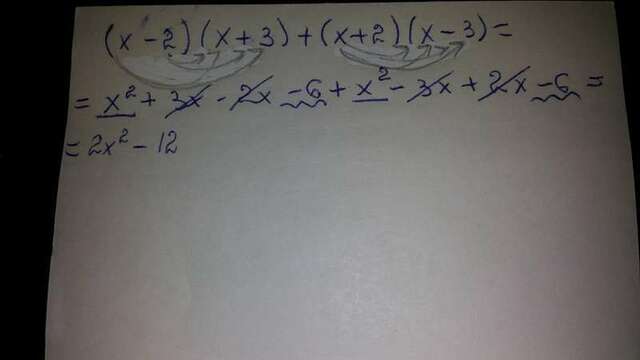 (x - 2)(x + 3) + (x + 2)(x - 3) =
= x² + 3x - 2x - 6 + x² - 3x + 2x - 6 =
= 2x² - 12